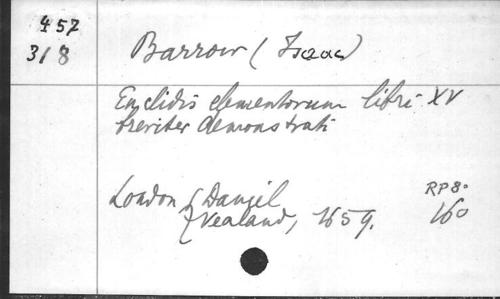 457
318
Barrow (Isaac)
Euclidis elementorum libri XV
breviter demonstrati
London (Daniel
Nealand, 1659.
RP 8°
160